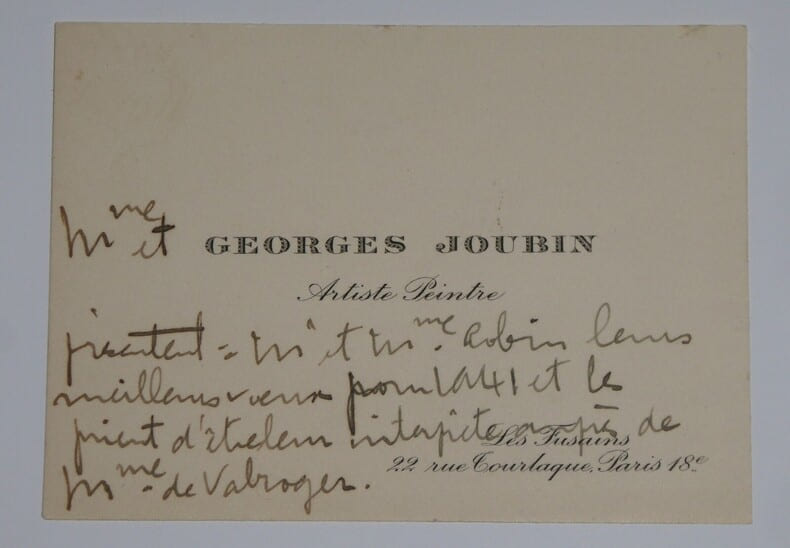 Mme et GEORGES JOUBIN
Artiste Peintre
présentent à Mr et Mme Robin leurs
meilleurs vœux pour 1941 et les
prient d'être leur interprète auprès de
Les Fusains
Mme de Valroger.
22 rue Tourlaque, Paris 18e